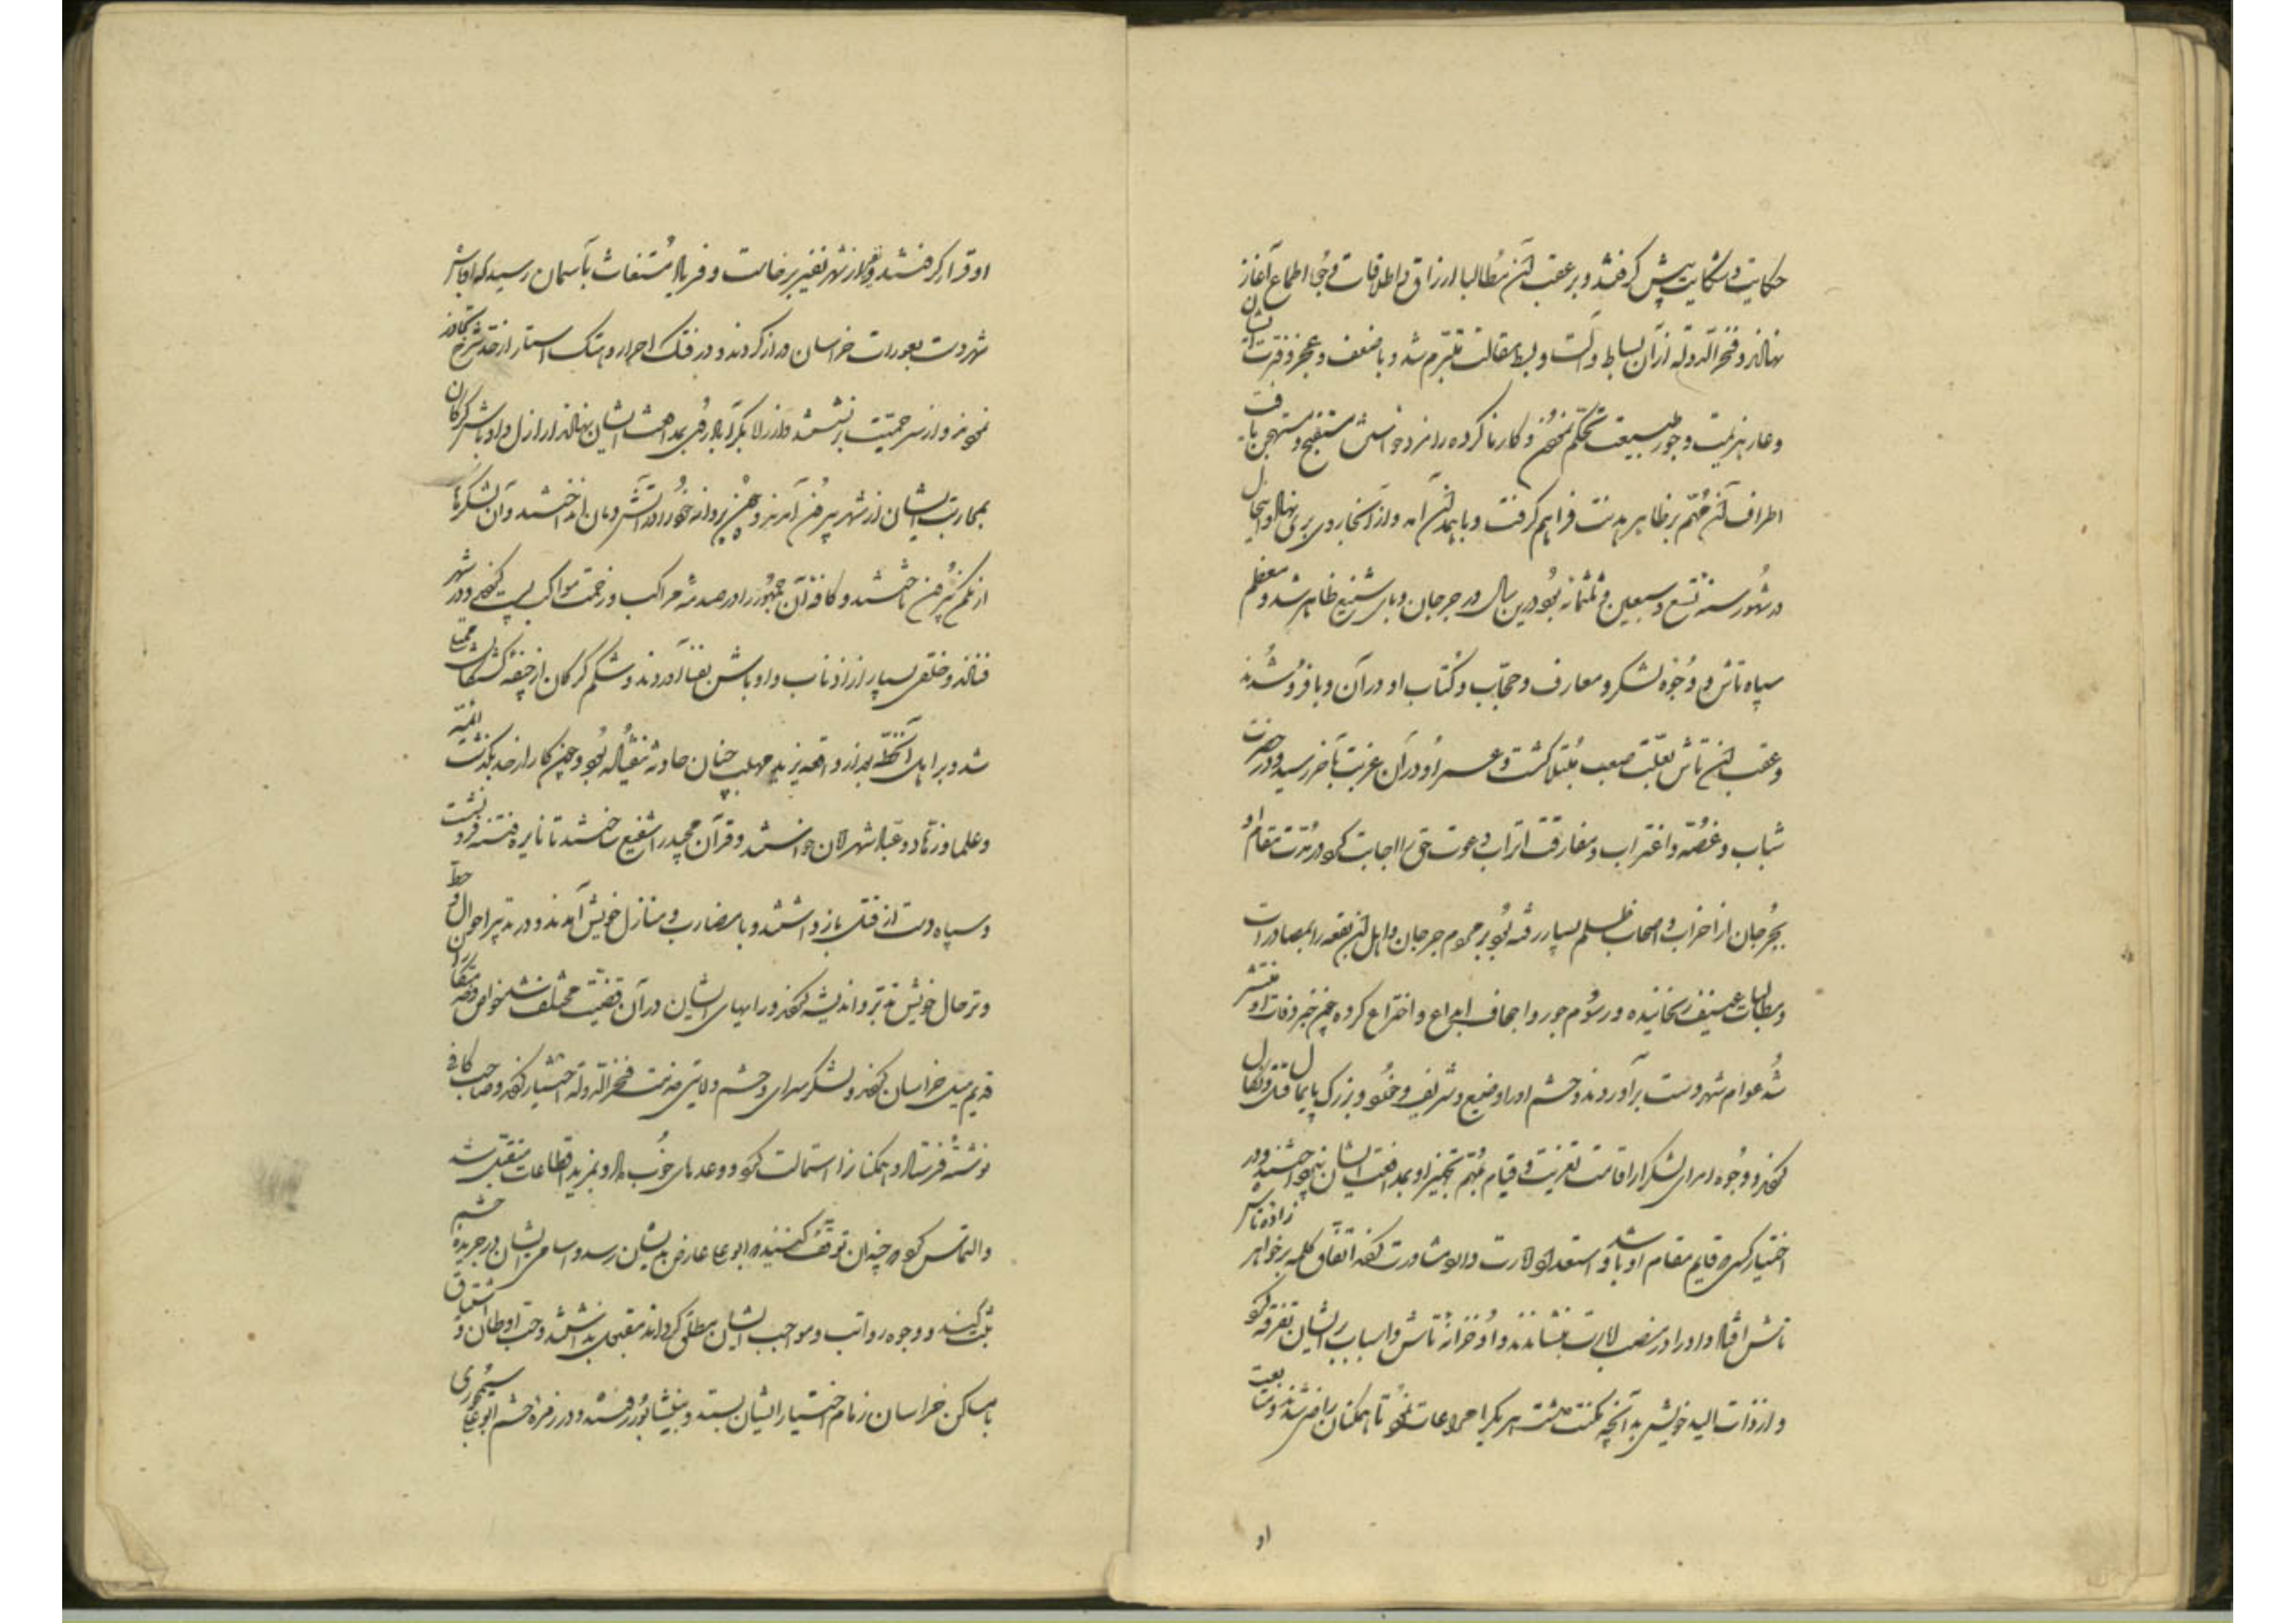 حکایت و شکایت پیش گرفتند و بر عقب آن مطالبا ارزاق و اطلاقات و جز اطماع آغاز
نهادند و فخر الدوله از آن بساط و آلت و بسط مقالت متبرم شد و با ضعف و عجز و فترت ایشان
و عار هزیمت و جور طبیعت تحکم نمودن و کار ناکرده را مزد خواستن مستقبح و مستهجن یافت
اطراف آن مهم بر ظاهر هدنت فراهم گرفت و باهمدان آمد و از آنجا روی بری نهاد و این حال
در شهور سنه تسع و سبعین و ثلثمائه بود درین سال در جرجان وبای شنیع ظاهر شد و معظم
سپاه تاش و وجوه لشکر و معارف و حجاب و کتاب او در آن وبا فرو شدند
و عقب آن تاش بعلت صعب مبتلا گشت و عمر او در آن غربت بآخر رسید و در حضرت
شباب و غصه و اغتراب و مفارقت اتراب دعوت حق را اجابت کرد و در مدت مقام او
بجرجان از اخراب و اصحاب ظلم بسیار رفته بود بر عموم جرجان و اهل آن بقعه را بمصادرات
و مطالبات عنیف رنجانیده و رسوم جور و اجحاف ابداع و اختراع کرده چون خبر وفات او منتشر
شد عوام شهر دست برآوردند و حشم او را وضیع و شریف و خرد و بزرگ پایمال قتل و نکال
کردند و وجوه امرای لشکر از اقامت تعزیت و قیام بمهم تجهیز او بمدافعت ایشان نپرداختند و در
اختیار کسی که قایم مقام او باشد و استعداد امارت دارد مشاورت کرد اتفاق کلمه بر خواهر زاده تاش
تاش افتاد و او را در منصب امارت بنشاندند و او خزانه تاش و اسباب بر ایشان تفرقه کرد
و از ذات الید خویش بدآنچه مکنت داشت هر یک را مراعات نمود تا همکنان راضی شدند و متابعت
او
او قرار گرفتند و از شهر نفیر برخاست و فریاد مستغاث بآسمان رسید که اوباش
شهر دست بعورات خراسان دراز کردند و در فتک احرار و هتک استار از حد شرع تجاوز
نمودند و از سر حمیت بر نشستند و از در لا بکر آباد روی بمدافعت ایشان نهادند اراذل و اوباش گرگان
بمحاربت ایشان از شهر بیرون آمدند و چون پروانه خود را در آتش دمان انداختند و آن لشکرها
از کمین بیرون تاختند و کافه آن جمهور را در صدمه مراکب و زحمت مواکب پست کردند و در شهر
فتادند و خلقی بسیار از اذناب و اوباش بفنا آوردند و شکم گرگان از جیفه کشتگان ممتلی
شد و بر اهل آن خطه بعد از واقعه یزید مهلب چنان حادثه نیفتاده بود و چون کار از حد بگذشت ائمه
و علما و زهاد و عباد شهر امان خواستند و قرآن مجید را شفیع ساختند تا نایره فتنه فرو نشست
و سپاه دست از قتل باز داشتند و با مضارب و منازل خویش آمدند و در تدبیر احوال و
و تر حال خویش تدبر و اندیشه کردند و رایهای ایشان در آن قضیت مختلف شد خواص و
قدیم میل خراسان کردند و لشکر سرای و حشم ولایتی خدمت فخر الدوله اختیار کردند و صاحب کافی
نوشته فرستاد و همکنان را استمالت کرد و وعدهای خوب داد و بمزید اقطاعات متقبل شد
و التماس کرد که چندان توقف کنند که ابو علی عارض بدیشان رسد و اسامی ایشان در جریده حشم
ثبت کنند و وجوه رواتب و مواجب ایشان مطلق گرداند مقبول نداشتند و حب اوطان و اشتیاق
با مساکن خراسان زمام اختیار ایشان بستد و بنیشابور رفتند و در زمره حشم ابو علی سیمجوری